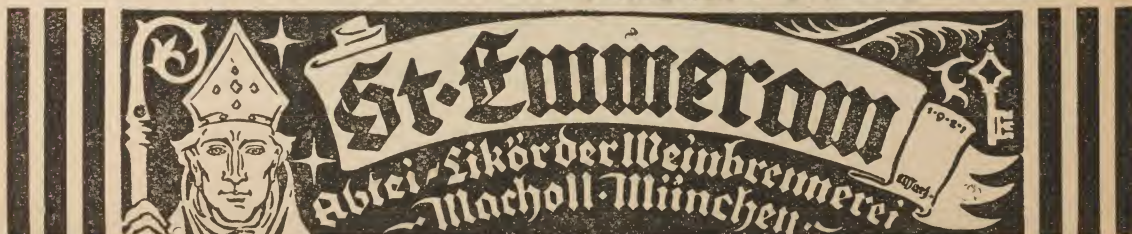 St. Emmeram
Abtei-Likör der Weinbrennerei
Macholl-München
1·9·2·1